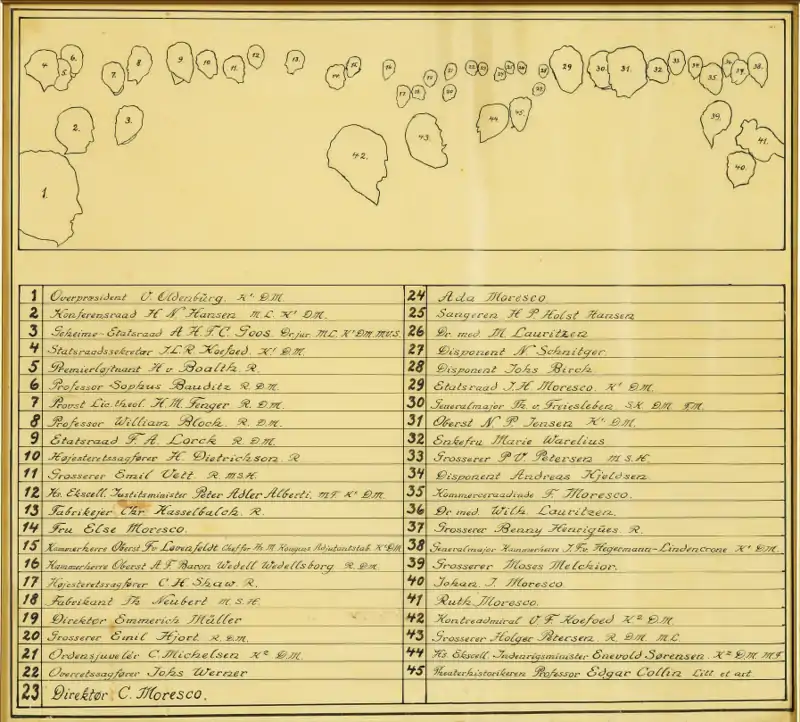 4. 6. 5. 7. 8. 9. 10. 11. 12. 13. 14. 15. 16. 17. 18. 19. 20. 21. 22. 23. 29. 30. 31. 32. 33. 34. 35. 36. 37. 38.
2. 3. 42. 43. 44. 45. 39. 41.
40.
1.
1 Overpræsident V. Oldenburg. K¹ D.M.
2 Konferensraad H N Hansen M.L. K¹ D.M.
3 Geheime-Etatsraad A.H.F.C. Goos. Dr.jur. M.L. K¹ D.M. M.V.S.
4 Statsraadssekretær J.L.R. Koefoed. K¹ D.M.
5 Premierløjtnant H v Boalth. R.
6 Professor Sophus Bauditz R.D.M.
7 Provst Lic. theol. H.M. Fenger R.D.M.
8 Professor William Bloch. R.D.M.
9 Etatsraad F. A. Lorck R.D.M.
10 Højesteretssagfører H. Dietrichson. R
11 Grosserer Emil Vett. R. M.S.H.
12 Hs. Ekscell. Justitsminister Peter Adler Alberti. M.F. K² D.M.
13 Fabrikejer Chr. Hasselbalch. R.
14 Fru Else Moresco.
15 Kammerherre Oberst Fv Løvenfeldt Chef for H. M. Kongens Adjutantstab. K² D.M.
16 Kammerherre Oberst A F Baron Wedell Wedellsborg R.D.M.
17 Højesteretssagfører C.H. Shaw. R.
18 Fabrikant Th Neubert M.S.H.
19 Direktør Emmerich Müller
20 Grosserer Emil Hjort. R.D.M.
21 Ordensjuvelér C. Michelsen K² D.M.
22 Overretssagfører Johs Werner
23 Direktør C. Moresco.
24 Ada Moresco
25 Sangeren H P Holst Hansen
26 Dr. med. M. Lauritzen
27 Disponent N. Schnitger.
28 Disponent Johs Birch
29 Etatsraad J.H. Moresco. K² D.M.
30 Generalmajor Th. v. Freiesleben. S.K. D.M. F.M.
31 Oberst N P Jensen K² D.M.
32 Enkefru Marie Warelius
33 Grosserer P V Petersen M.S.H.
34 Disponent Andreas Hjeldsen.
35 Kommerceraadinde F. Moresco.
36 Dr. med Wilh. Lauritzen.
37 Grosserer Benny Henriques R.
38 Generalmajor Kammerherre J.Fv. Hegermann-Lindencrone K¹ D.M.
39 Grosserer Moses Melchior.
40 Johan J. Moresco
41 Ruth Moresco.
42 Kontreadmiral V F Koefoed K² D.M.
43 Grosserer Holger Petersen. R. D.M. M.L.
44 Hs. Ekscell. Indenrigsminister Enevold Sørensen. K² D.M. M.F.
45 Theaterhistorikeren Professor Edgar Collin Litt et art.